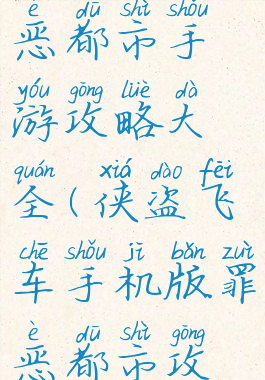 è dū shì shǒu
恶都市手
yóu gōng lüè dà
游攻略大
quán xiá dào fēi
全(侠盗飞
chē shǒu jī bǎn zuì
车手机版罪
è dū shì gōng
恶都市攻